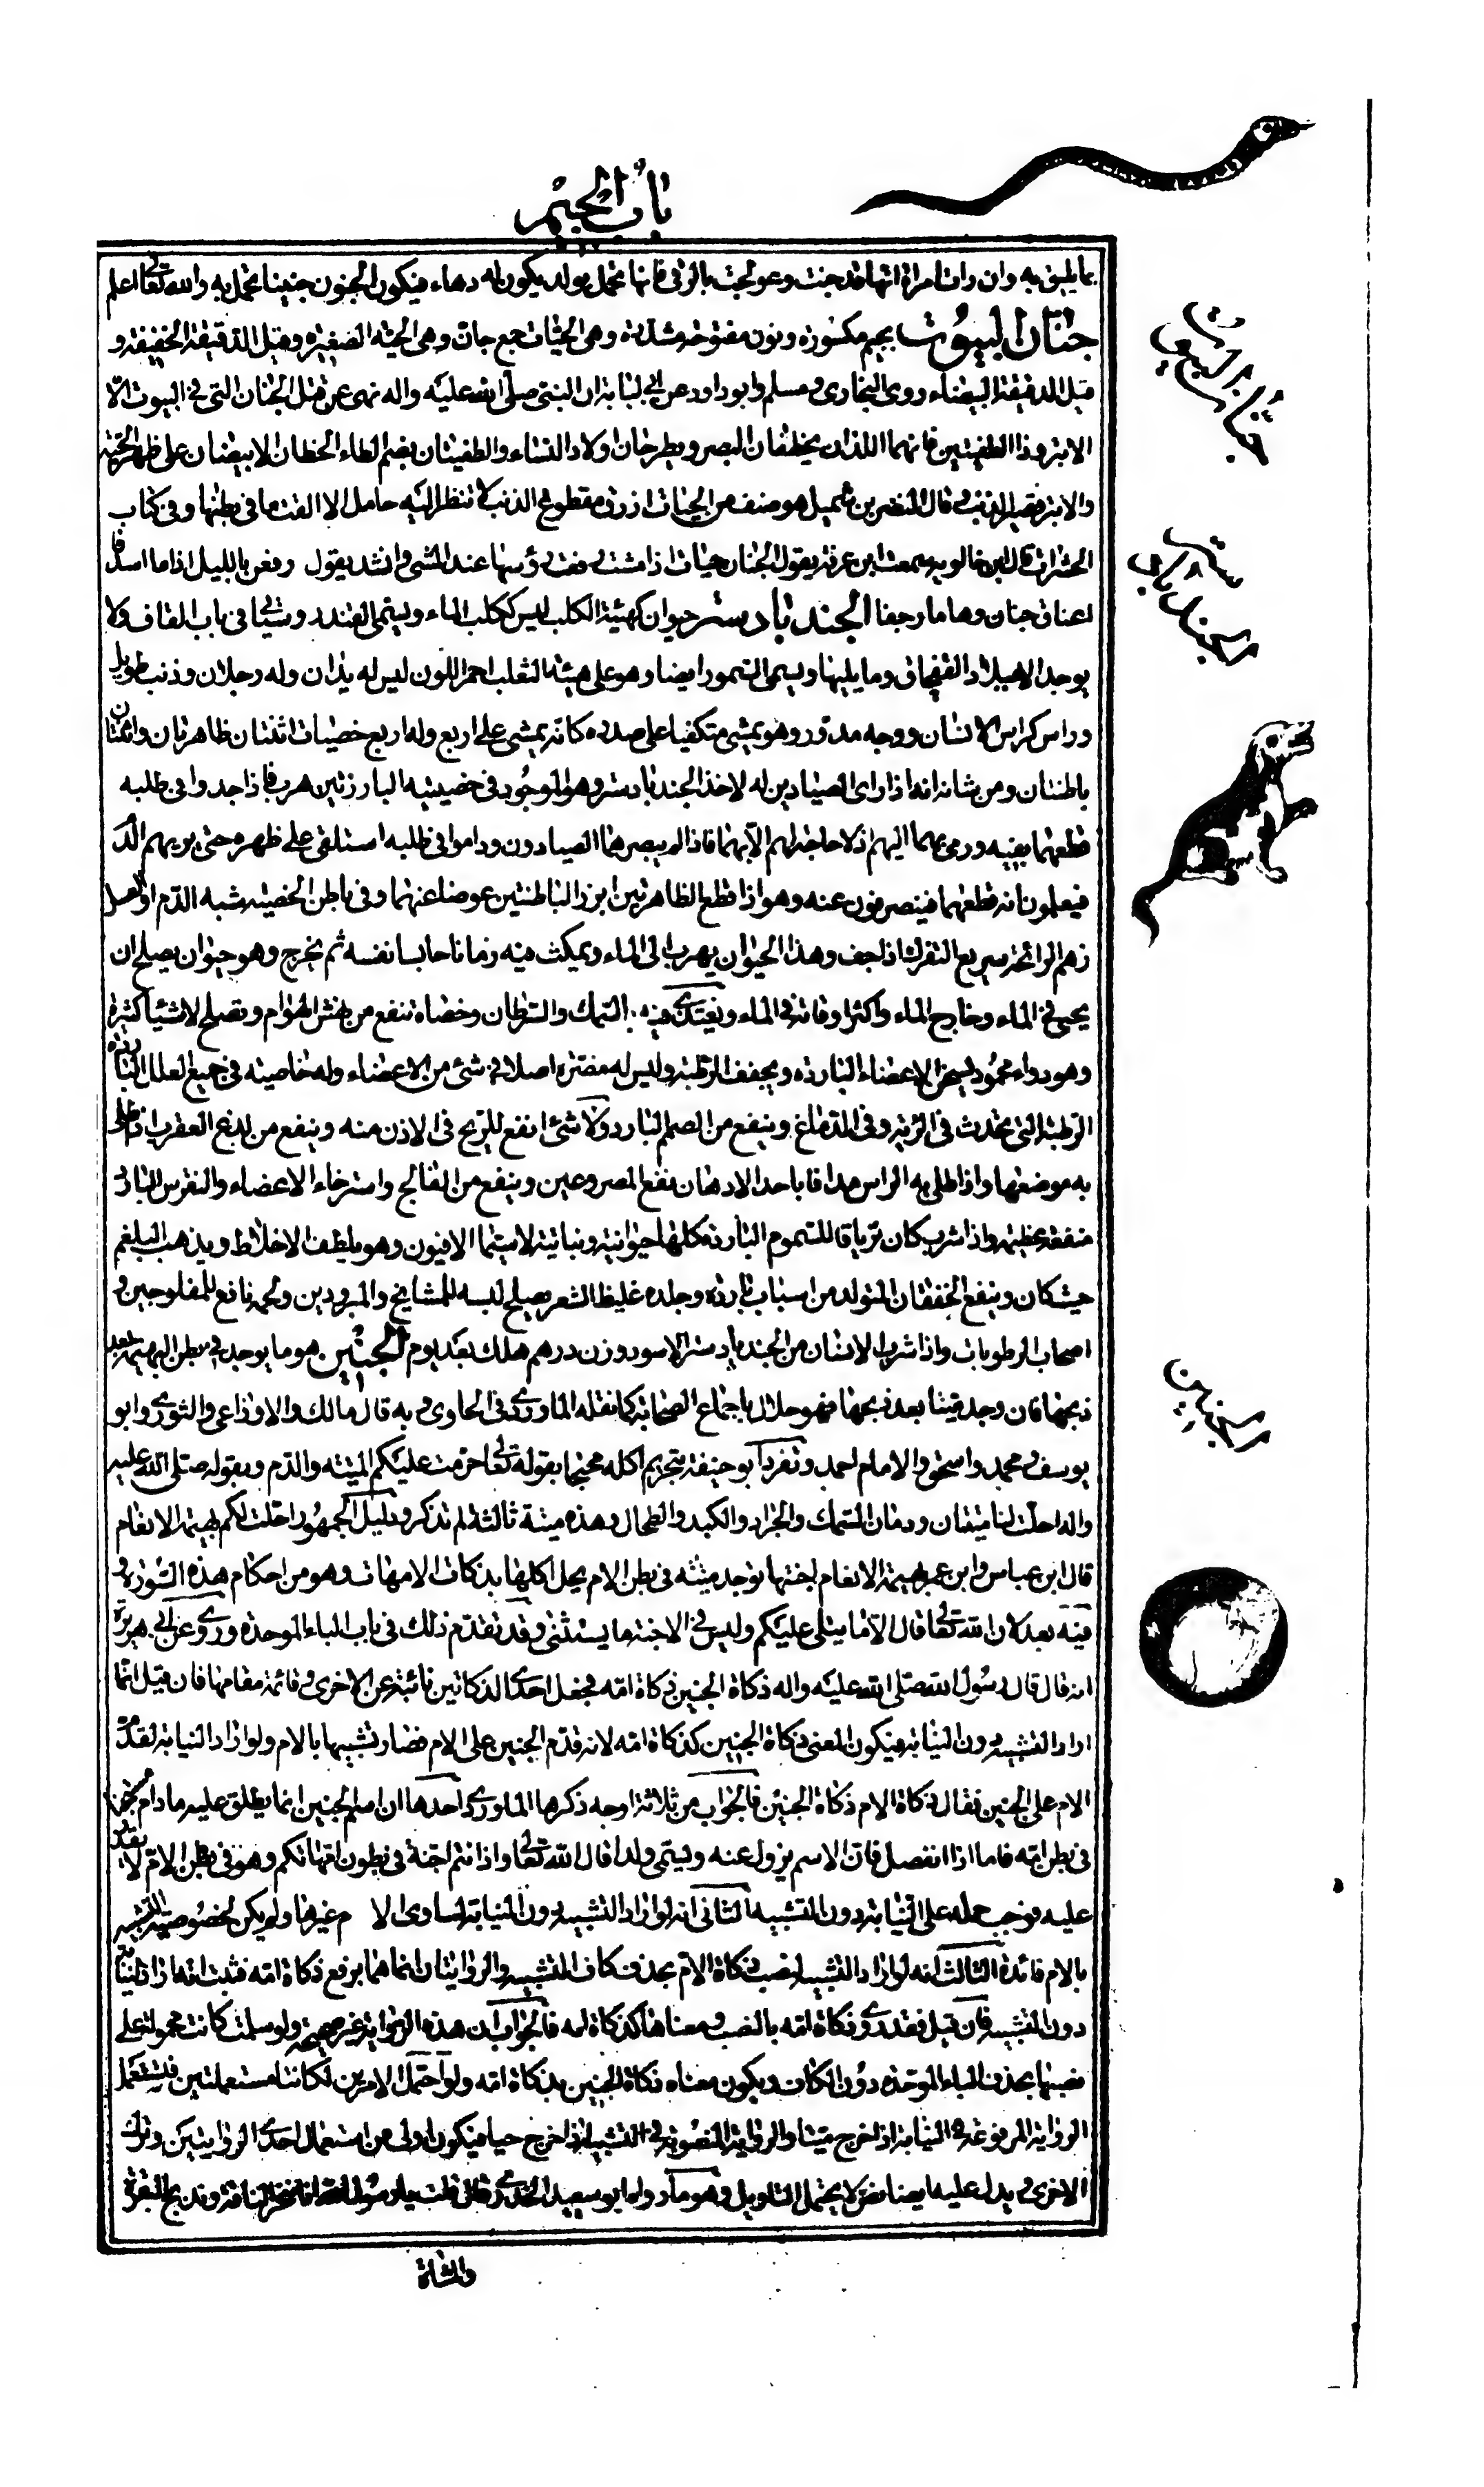 باب الجيم
بما يليق به وان رات امراة انها قد جنت وعولجت بالرقى فانها تحمل بولد يكون له دهاء فيكون الجنون جنينا تحمل به والله تعالى اعلم
جنان البيوت بجيم مكسورة ونون مفتوحة مشددة وهى الحيات جمع جان وهى الحية الصغيرة وقيل الدقيقة الخفيفة و
قيل الدقيقة البيضاء روى البخارى ومسلم وابوداود عن ابى لبابة ان النبى صلى الله عليه واله نهى عن قتل الجنان التى فى البيوت الا
الابتر وذا الطفيتين فانهما اللذان يخطفان البصر ويطرحان اولاد النساء والطفيتان بضم الطاء الخطان الابيضان على ظهر الحية
والابتر قصير الذنب وقال النضر بن شميل هو صنف من الحيات ازرق مقطوع الذنب لا تنظر اليه حامل الا القت ما فى بطنها وفى كتاب
الحشرات قال ابن خالويه سمعت ابن عرفة يقول الجنان حيات اذا مشت رفعت رؤسها عند المشى وانشد يقول رفعن بالليل اذا ما اسدفا
اعناق جنان وهاما رجفا الجندبادستر حيوان كهيئة الكلب ليس ككلب الماء ويسمى القندر وسياتى فى باب القاف ولا
يوجد الا ببلاد القفجاق وما يليها ويسمى السمور ايضا وهو على هيئة الثعلب احمر اللون ليس له يدان وله رجلان وذنب طويل
وراس كراس الانسان ووجه مدور وهو يمشى متكفيا على صدره كانه يمشى على اربع وله اربع خصيات اثنتان ظاهرتان واثنتان
باطنتان ومن شانه انه اذا راى الصيادين له لاخذ الجندبادستر وهو الموجود فى خصيتيه البارزتين هرب فاذا جدوا فى طلبه
قطعهما بفيه ورمى بهما اليهم اذ لا حاجة لهم الا بهما فاذا لم يبصرهما الصيادون وداموا فى طلبه استلقى على ظهره حتى يريهم الدم
فيعلمون انه قطعهما فينصرفون عنه وهو اذا قطع الظاهرتين ابرز الباطنتين عوضا عنهما وفى باطن الخصية شبه الدم او العسل
زهم الرائحة سريع التفرك اذا جف وهذا الحيوان يهرب الى الماء ويمكث فيه زمانا حابسا نفسه ثم يخرج وهو حيوان يصلح ان
يحيى فى الماء وخارج الماء واكثر اوقاته فى الماء ويغتذى فيه بالسمك والسرطان وخصاه تنفع من نهش الهوام وتصلح لاشياء كثيرة
وهو دواء محمود يسخن الاعضاء الباردة ويجفف الرطبة وليس له مضرة اصلا فى شئ من الاعضاء وله خاصية فى جميع العلل الباردة
الرطبة التى تحدث فى الرية وفى الدماغ وينفع من الصمم البارد ولا شئ انفع للريح فى الاذن منه وينفع من لدغ العقرب اذا طلى
به موضعها واذا طلى به الراس مدافا باحد الادهان نفع المصروعين وينفع من الفالج واسترخاء الاعضاء والنقرس البارد
منفعة عظيمة واذا شرب كان ترياقا للسموم الباردة كلها حيوانية ونباتية لاسيما الافيون وهو يلطف الاخلاط ويذهب البلغم
حيث كان وينفع الخفقان المتولد من اسباب باردة وجلده غليظ الشعر يصلح لبسه للمشايخ والمبرودين ولحمه نافع للمفلوجين و
اصحاب الرطوبات واذا شرب الانسان من الجندبادستر الاسود وزن درهم هلك بعد يوم الجنين هو ما يوجد فى بطن البهيمة بعد
ذبحها فان وجد ميتا بعد ذبحها فهو حلال باجماع الصحابة كما نقله الماوردى فى الحاوى وبه قال مالك والاوزاعى والثورى وابو
يوسف ومحمد واسحق والامام احمد وتفرد ابوحنيفة بتحريم اكله محتجا بقوله تعالى حرمت عليكم الميتة والدم وبقوله صلى الله عليه
واله احلت لنا ميتتان ودمان السمك والجراد والكبد والطحال وهذه ميتة ثالثة لم تذكر ودليل الجمهور احلت لكم بهيمة الانعام
قال ابن عباس وابن عمر بهيمة الانعام اجنتها توجد ميتة فى بطن الام يحل اكلها بذكات الامهات وهو من احكام هذه السورة و
فيه بعد لان الله تعالى قال الا ما يتلى عليكم وليس فى الاجنة ما يستثنى وقد تقدم ذلك فى باب الباء الموحدة وروى عن ابى هريرة
انه قال قال رسول الله صلى الله عليه واله ذكاة الجنين ذكاة امه فجعل احدى الذكاتين نائبة عن الاخرى وقائمة مقامها فان قيل انما
اراد التشبيه دون النيابة فيكون المعنى ذكاة الجنين كذكاة امه لانه قدم الجنين على الام فصار تشبيها بالام ولو اراد النيابة لقدم
الام على الجنين فقال ذكاة الام ذكاة الجنين فالجواب من ثلاثة اوجه ذكرها الماوردى احدها ان اسم الجنين انما يطلق عليه ما دام مجتنا
فى بطن امه فاما اذا انفصل فان الاسم يزول عنه ويسمى ولدا قال الله تعالى واذ انتم اجنة فى بطون امهاتكم وهو فى بطن الام لا يقدر
عليه فوجب حمله على النيابة دون التشبيه الثانى انه لو اراد التشبيه دون النيابة لساوى الام غيرها ولم يكن لخصوصية التشبيه
بالام فائدة الثالث انه لو اراد التشبيه لنصب ذكاة الام بحذف كاف التشبيه والروايتان انما هما برفع ذكاة امه فثبت انه اراد النيابة
دون التشبيه فان قيل فقد روى ذكاة امه بالنصب ومعناها كذكاة امه فالجواب ان هذه الرواية غير صحيحة ولو سلمت كانت محمولة على
نصبها بحذف الباء الموحدة دون الكاف ويكون معناه ذكاة الجنين بذكاة امه ولو احتمل الامرين لكانتا مستعملتين فتستعمل
الرواية المرفوعة فى النيابة اذا خرج ميتا والرواية المنصوبة فى التشبيه اذا خرج حيا فيكون اولى من استعمال احدى الروايتين وترك
الاخرى ويدل عليه ايضا نص لا يحتمل التاويل وهو ما رواه ابوسعيد الخدرى قال قلت يا رسول الله انا ننحر الناقة ونذبح البقرة
والشاة
جنان البيوت
الجندبادستر
الجنين